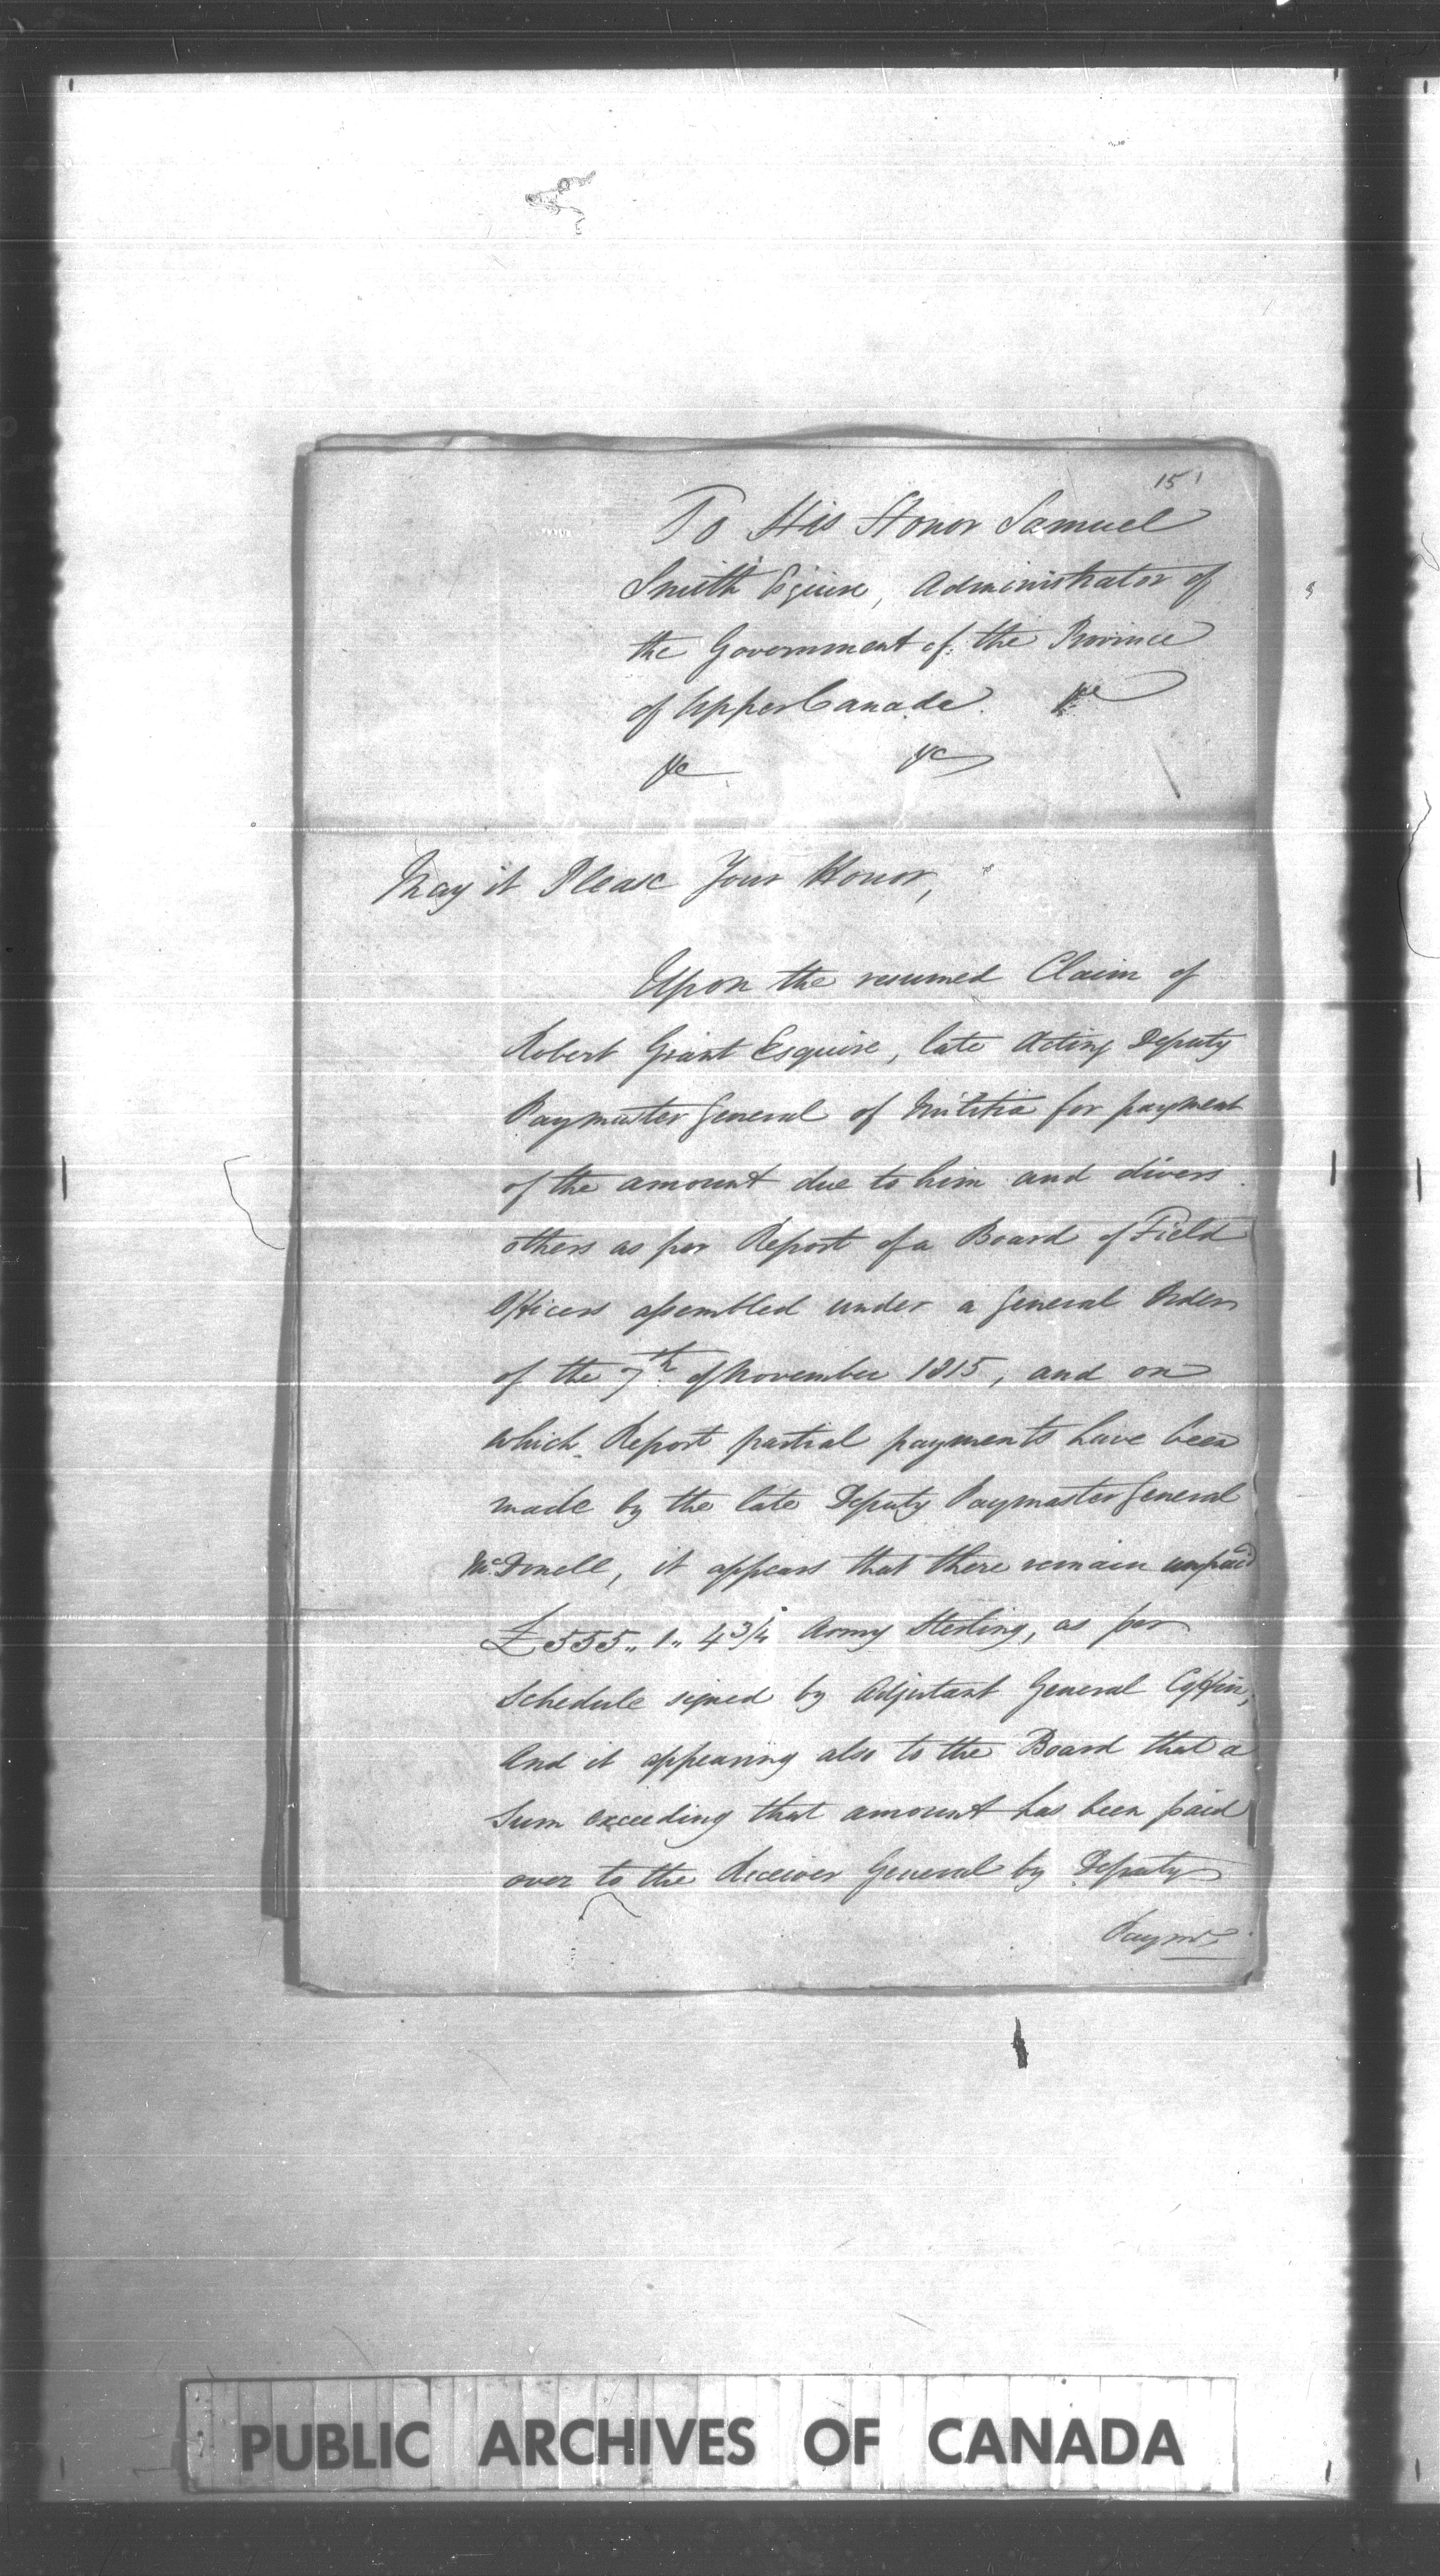 151
To His Honor Samuel
Smith Esquire, Administrator of
the Government of the Province
of Upper Canada. &c
&c &c
May it Please Your Honor,
Upon the resumed Claim of
Robert Grant Esquire, late Acting Deputy
Paymaster General of Militia for payment
of the amount due to him and divers
others as per Report of a Board of Field
Officers assembled under a General Order
of the 7th of November 1815, and on
which Report partial payments have been
made by the late Deputy Paymaster General
McDonell, it appears that there remain unpaid
£555,, 1,, 4 3/4 Army Sterling, as per
Schedule signed by Adjutant General Coffin,
And it appearing also to the Board that a
Sum exceeding that amount has been paid
over to the Receiver General by Deputy
Paymr
PUBLIC ARCHIVES OF CANADA